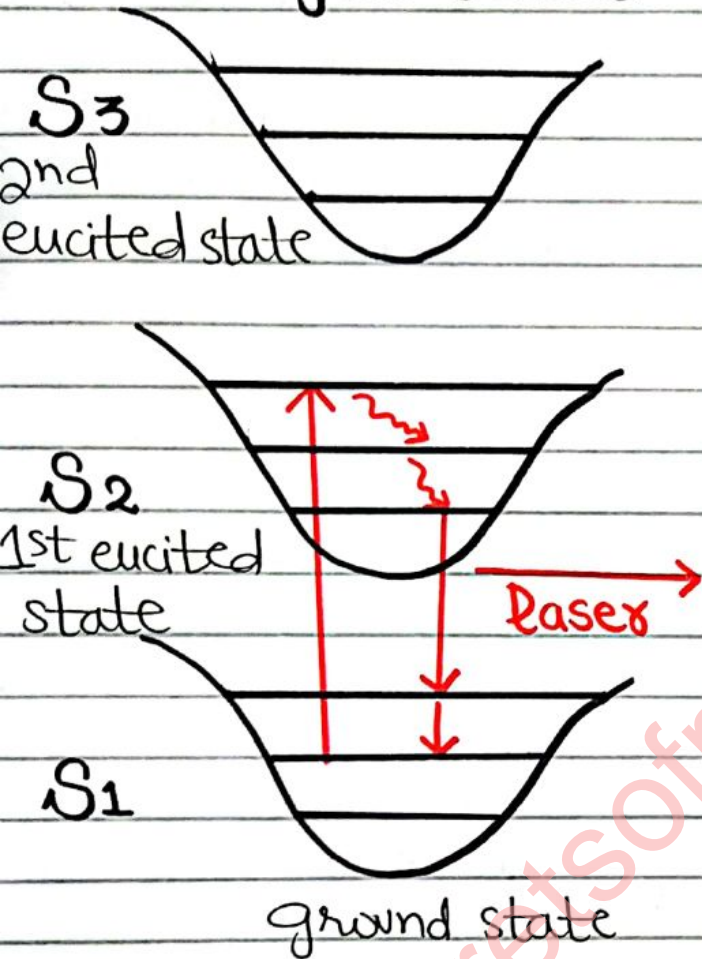 S3
2nd
eucited state
S2
1st eucited
state
laser
S1
ground state